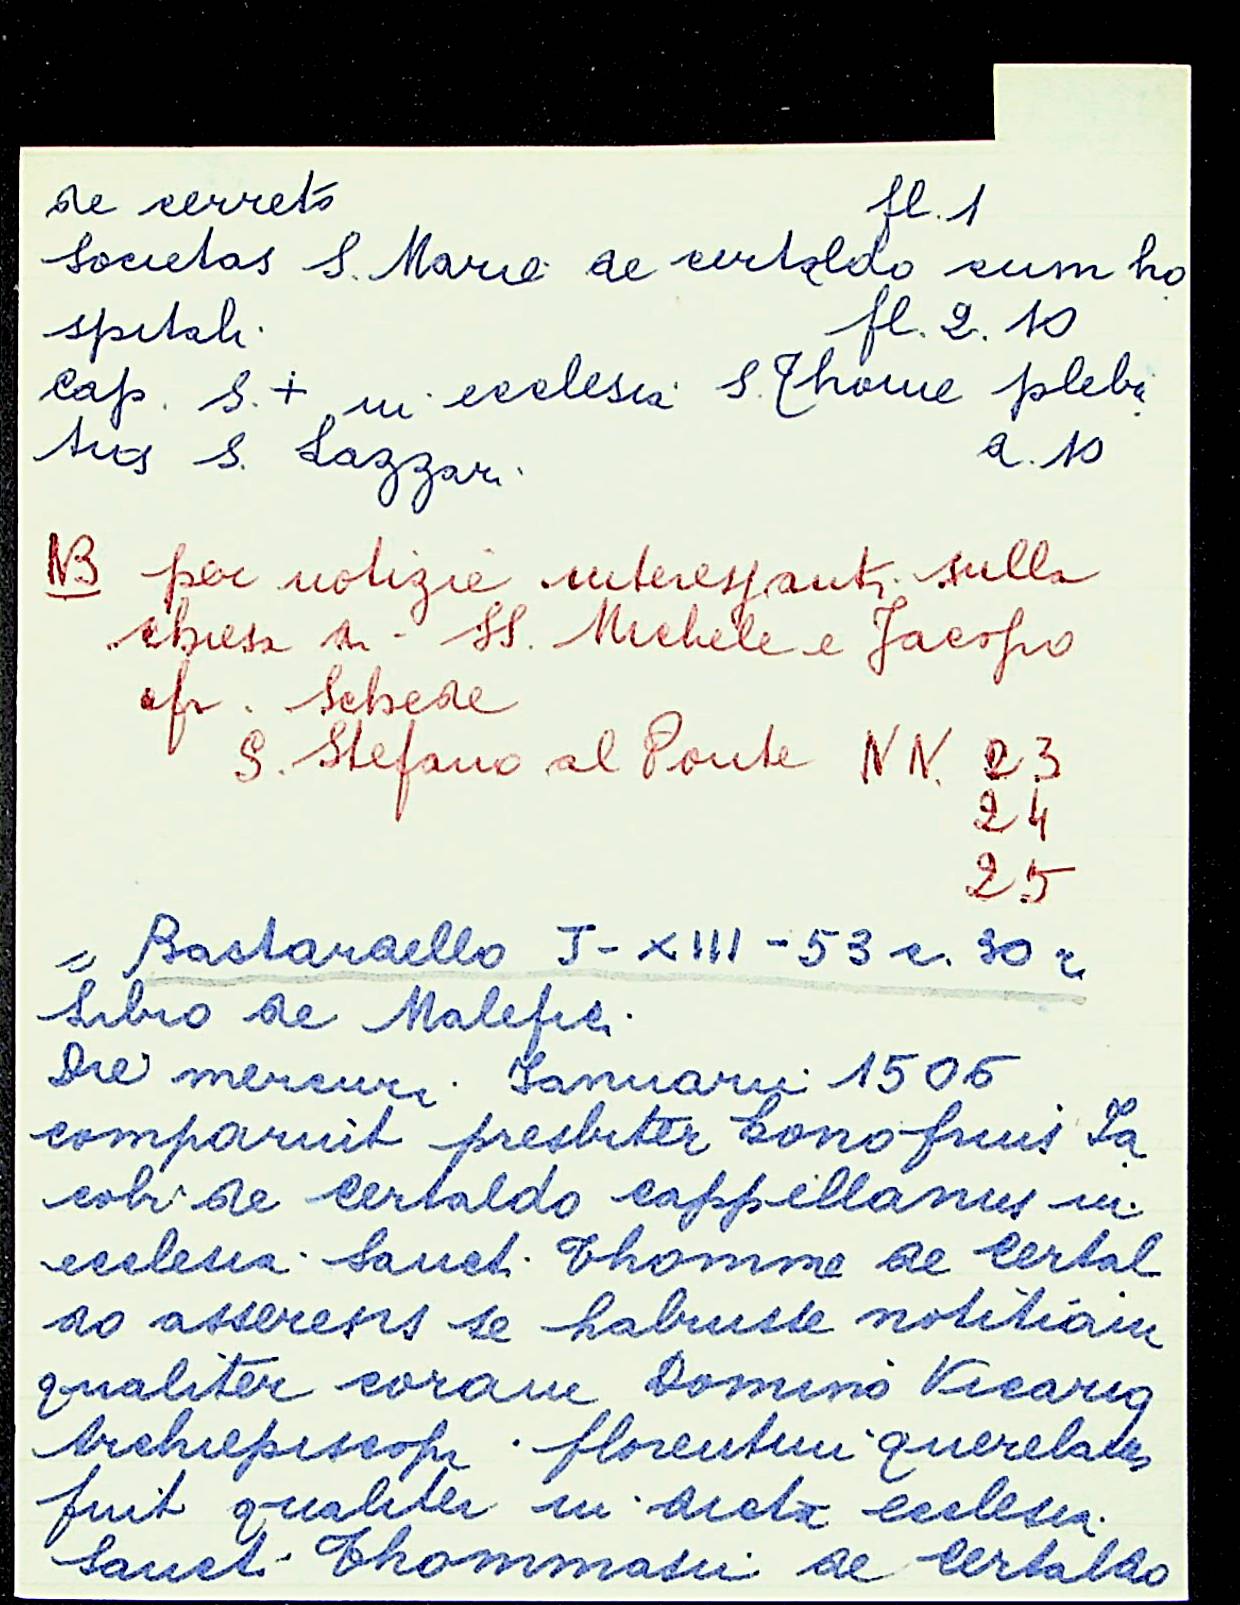 de cerreto fl. 1
Societas S. Marie de certaldo cum ho
spitali fl. 2. 10
Cap. S. + in ecclesia S. Thome pleba
tus S. Lazzari a. 10
NB per notizie interessanti sulla
chiesa di SS. Michele e Jacopo
cfr. Schede
S. Stefano al Ponte NN. 23
24
25
= Bastardello J - XIII - 53 c. 30 r.
Libro de Malefici
Die mercuri Ianuarii 1506
comparuit presbiter honofrius Ia
cobi de Certaldo cappellanus in
ecclesia Sancti Thomme de Certal
do asserens se habuisse notitiam
qualiter coram Domino Vicario
Archiepiscopi florentini querelatus
fuit qualiter in dicta ecclesia
Sancti Thommasii de Certaldo